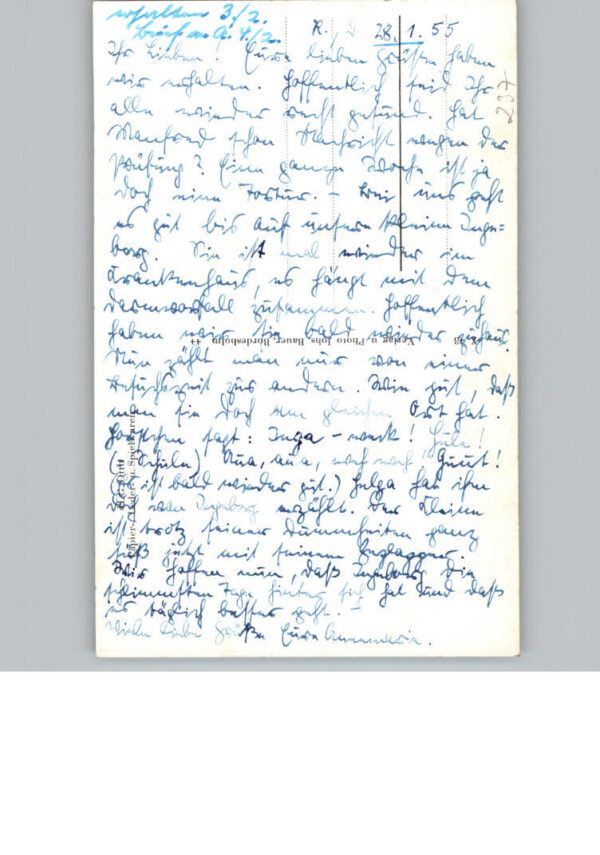 erhalten 3./2.
Brief an A. 4./2.
R., d 28.1.55
Ihr Lieben! Eure lieben Grüße haben
wir erhalten. Hoffentlich seid Ihr
alle wieder recht gesund. Hat
Manfred schon Nachricht wegen der
Prüfung? Eine ganze Woche ist ja
doch eine Tortur. – Bei uns geht
es gut bis auf unsere kleine Inge=
borg. Sie ist mal wieder im
Krankenhaus, es hängt mit dem
Darmvorfall zusammen. Hoffentlich
haben wir sie bald wieder zuhaus.
Nun zählt man nur von einer
Besuchszeit zur andern. Wie gut, daß
man sie doch am gleichen Ort hat.
sagt: Inga – weck! Hüle!
(= Schule) Aua, aua, weh weh. Guut!
(= ist bald wieder gut.) Helga hat ihm
von Ingeborg erzählt. Der Kleine
ist trotz seiner Dummheiten ganz
süß jetzt mit seinem Geplapper.
Wir hoffen nun, daß Ingeborg die
schlimmsten Tage hinter sich hat und daß
es täglich besser geht.
Viele liebe Grüße Eure Annemarie.
237
Verlag u. Photo Johs. Bauer, Bordesholm 44
Papier- Leder- u. Spielwaren